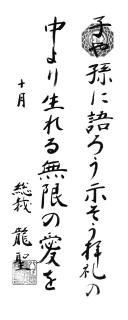 子や孫に語ろう示そう拝礼の
中より生れる無限の愛を
十月
総裁 龍聖